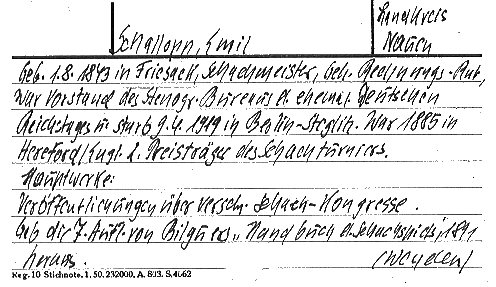 Schallopp, Emil
Landkreis
Nauen
Geb. 1.8.1843 in Friesack, Schachmeister, Geh. Rechnungs-Rat,
war Vorstand des Stenogr. Bureaus d. ehemal. Deutschen
Reichstags u. starb 9.4.1919 in Berlin-Steglitz. War 1885 in
Hereford/Engl. 2. Preisträger des Schachturniers.
Hauptwerke:
Veröffentlichungen über versch. Schach-Kongresse.
Gab die 7. Aufl. von Bilguers „Handbuch d. Schachspiels", 1891
heraus.
Reg. 10 Stichnote. 1. 50. 232000. A. 803. S. 4662